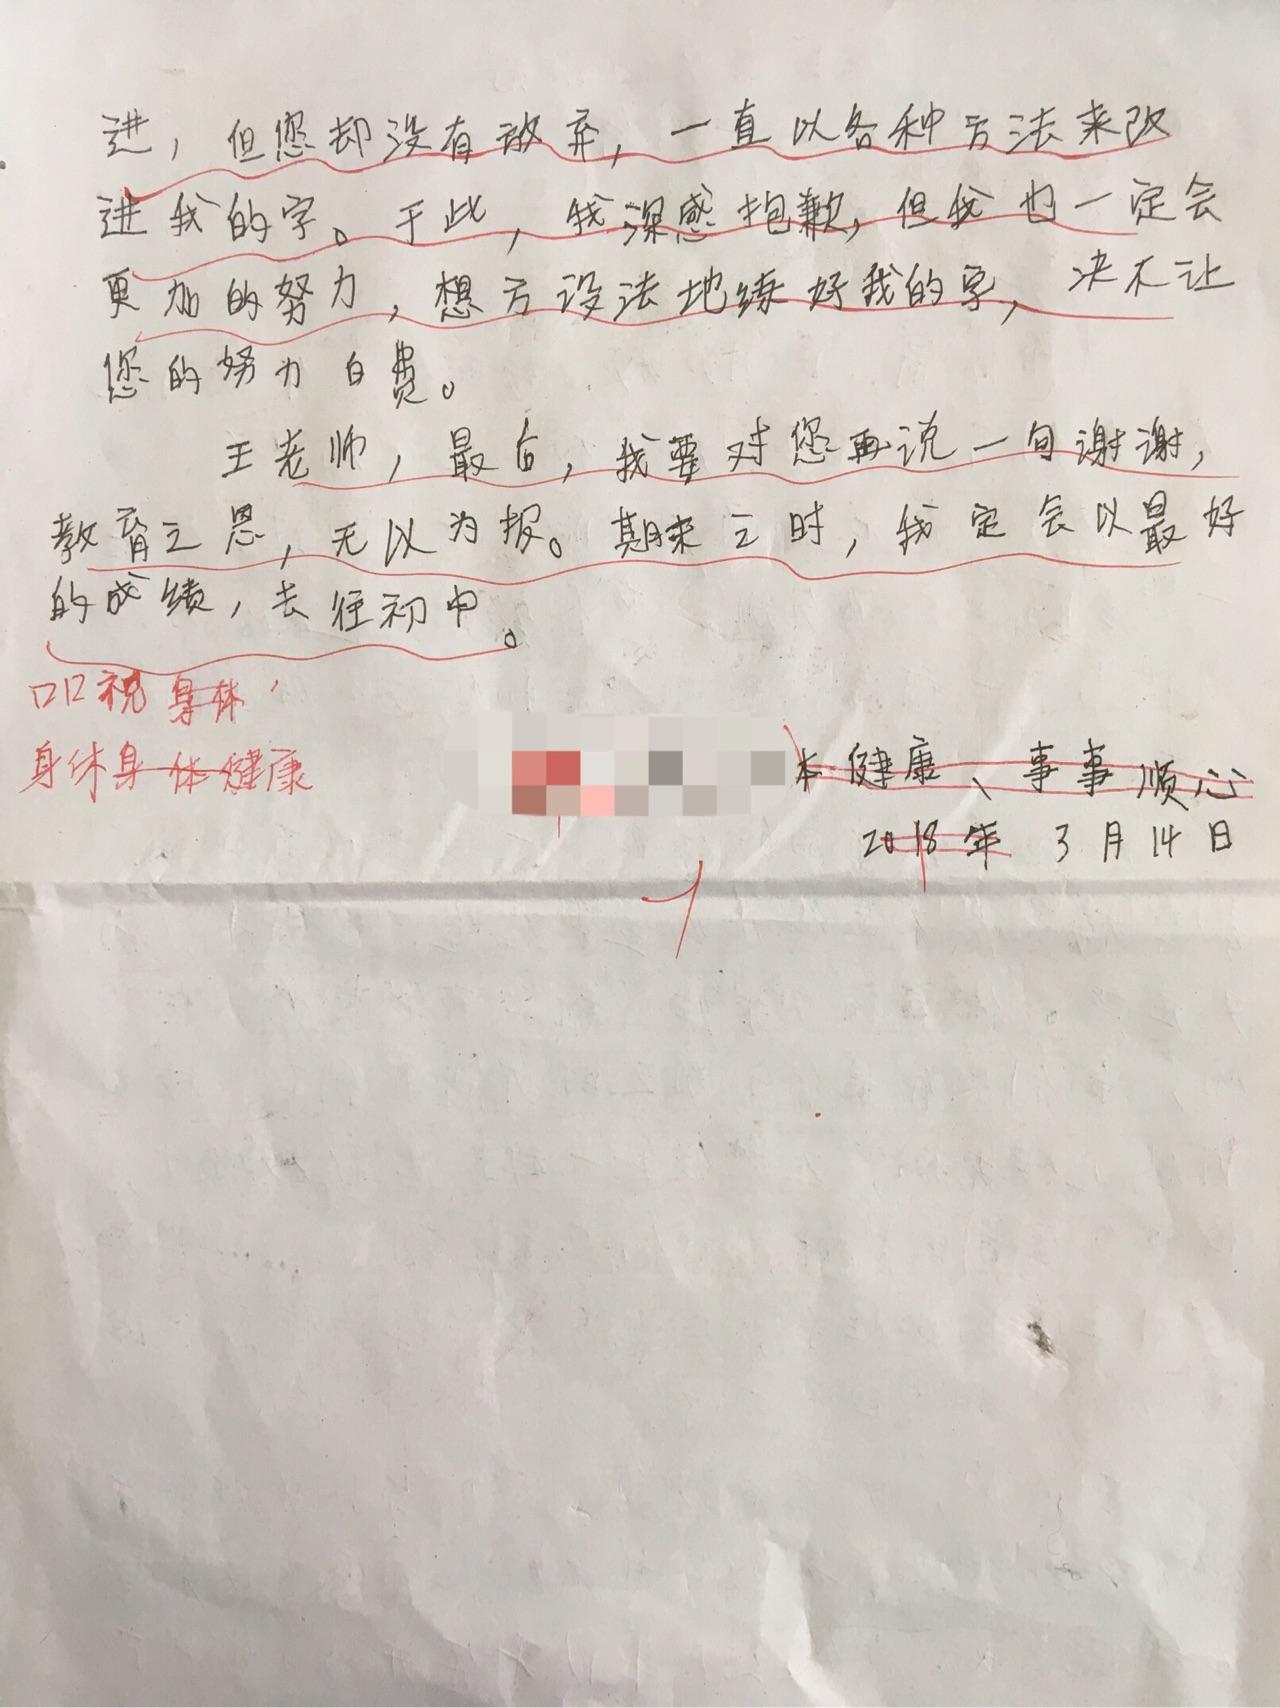 进，但您却没有放弃，一直以各种方法来改
进我的字。于此，我深感抱歉，但我也一定会
更加的努力，想方设法地练好我的字，决不让
您的努力白费。
王老师，最后，我要对您再说一句谢谢，
教育之恩，无以为报。期末之时，我定会以最好
的成绩，去往初中。
口口祝身体
身体身体健康
健康、事事顺心
2018年3月14日